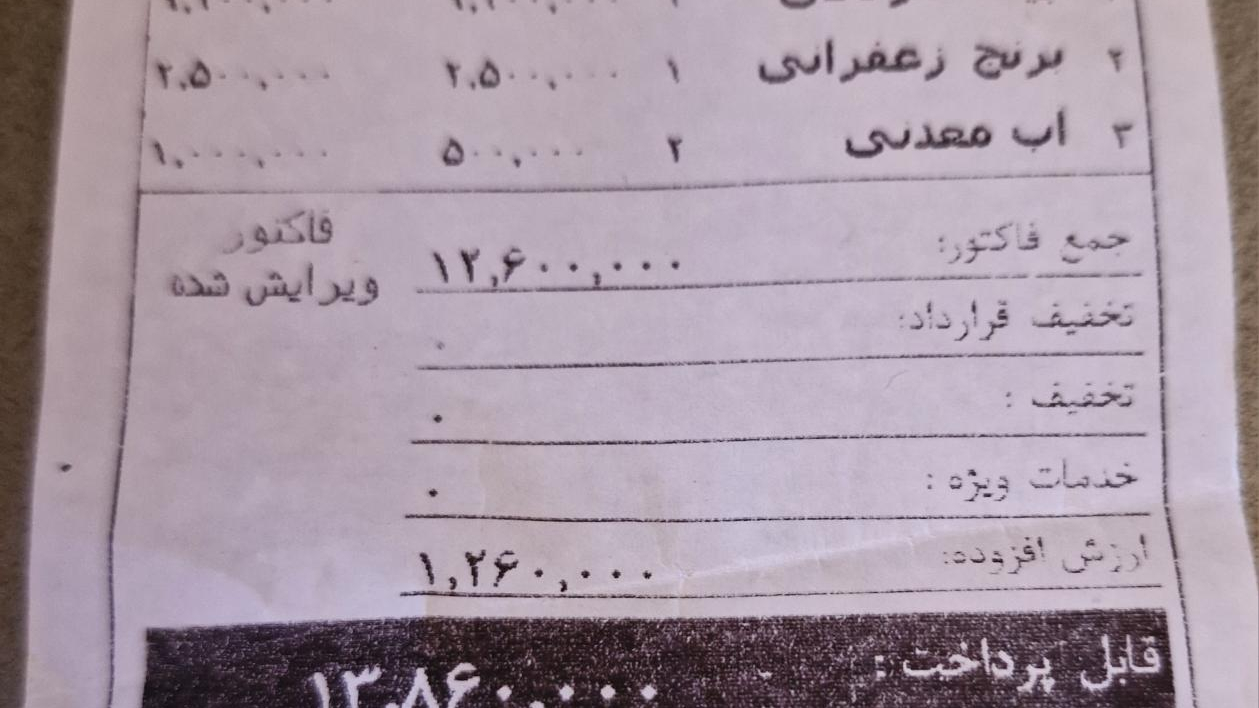 ۲ برنج زعفرانی ۱ ۲,۵۰۰,۰۰۰ ۲,۵۰۰,۰۰۰
۳ آب معدنی ۲ ۵۰۰,۰۰۰ ۱,۰۰۰,۰۰۰
جمع فاکتور: ۱۲,۶۰۰,۰۰۰
فاکتور
ویرایش شده
تخفیف قرارداد: ۰
تخفیف : ۰
خدمات ویژه : ۰
ارزش افزوده: ۱,۲۶۰,۰۰۰
قابل پرداخت : ۱۳,۸۶۰,۰۰۰